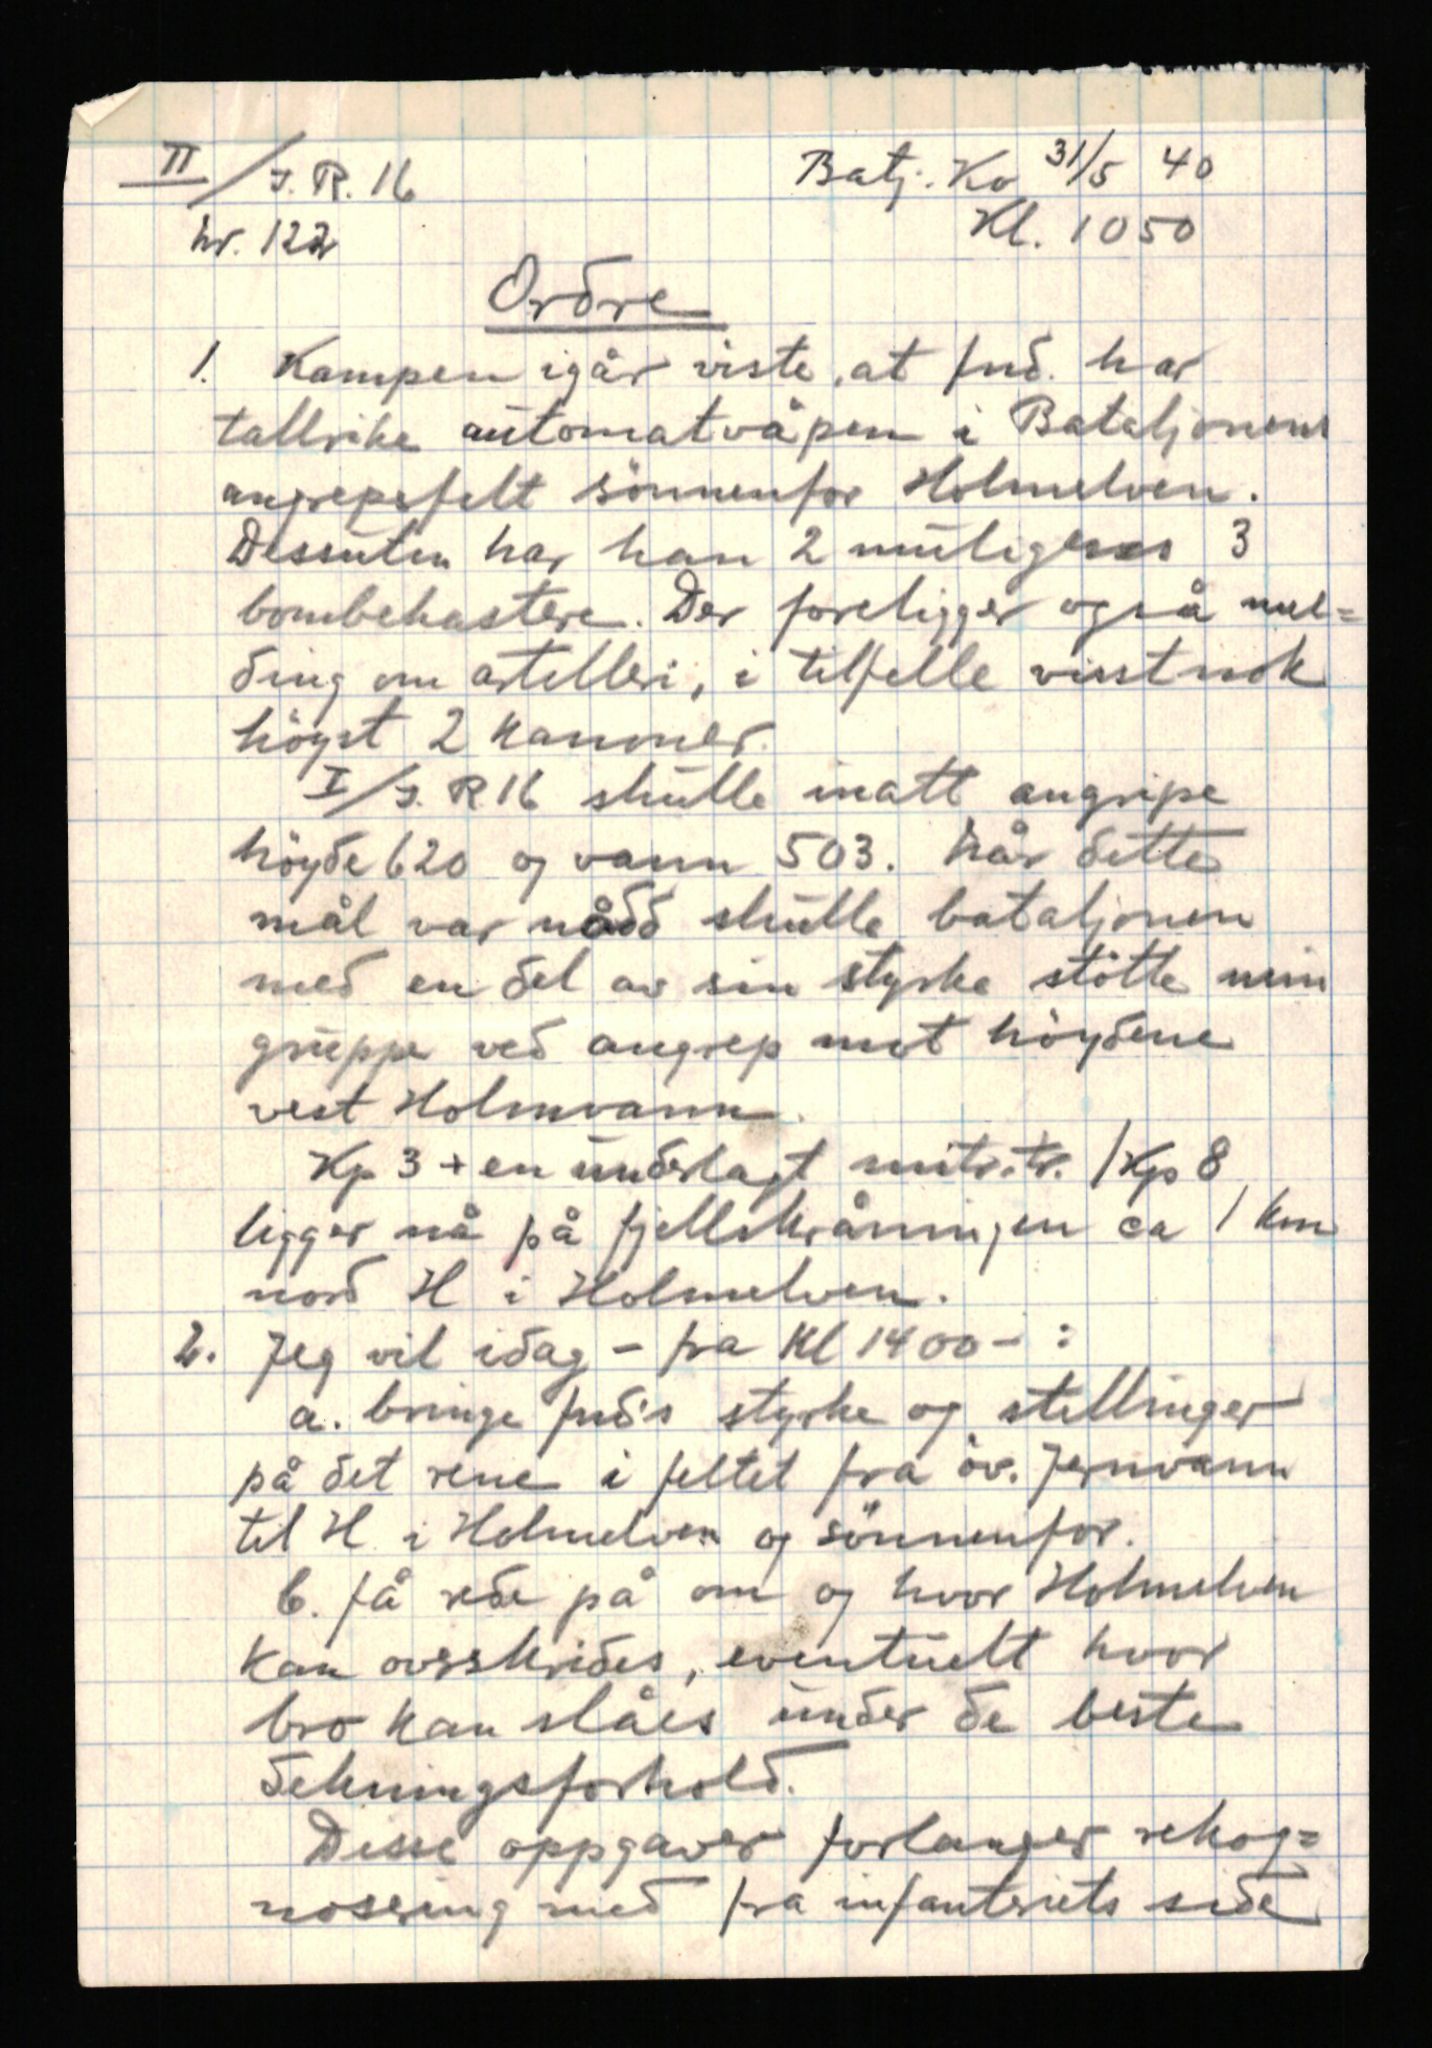 II/J.R.16
Batj. Ko 31/5 40
nr. 122
Kl. 1050
Ordre
1. Kampen igår viste, at fnd. har
tallrike automatvåpen i Bataljonens
angrepsfelt sönnenfor Holmelven.
Dessuten har han 2 muligens 3
bombekastere. Der foreligger også mel=
ding om artelleri, i tilfelle visstnok
höyst 2 kanoner.
I/J.R 16 skulle inatt angripe
höyde 620 og vann 503. Når dette
mål var nådd skulle bataljonen
med en del av sin styrke stötte min
gruppe ved angrep mot höydene
vest Holmvann.
Kp 3 + en underlagt mitr.tr. / Kp 8
ligger nå på fjellskråningen ca 1 km
nord H i Holmelven.
2. Jeg vil idag – fra Kl 1400 – :
a. bringe fnds styrke og stillinger
på det rene i feltet fra öv. Jernvann
til H i Holmelven og sönnenfor.
b. få rede på om og hvor Holmelven
kan overskrides, eventuelt hvor
bro kan slåes under de beste
dekningsforhold.
Disse oppgaver forlanger rekog=
nosering med fra infanteriets side